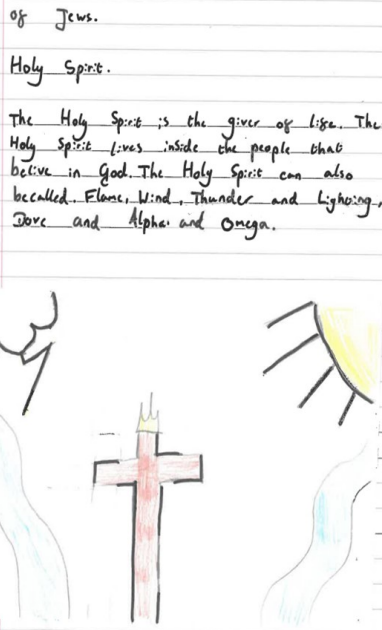 of Jews.
Holy Spirit.
The Holy Spirit is the giver of life. The
Holy Spirit lives inside the people that
belive in God. The Holy Spirit can also
becalled. Flame, Wind, Thunder and Lighting,
Dove and Alpha and Omega.